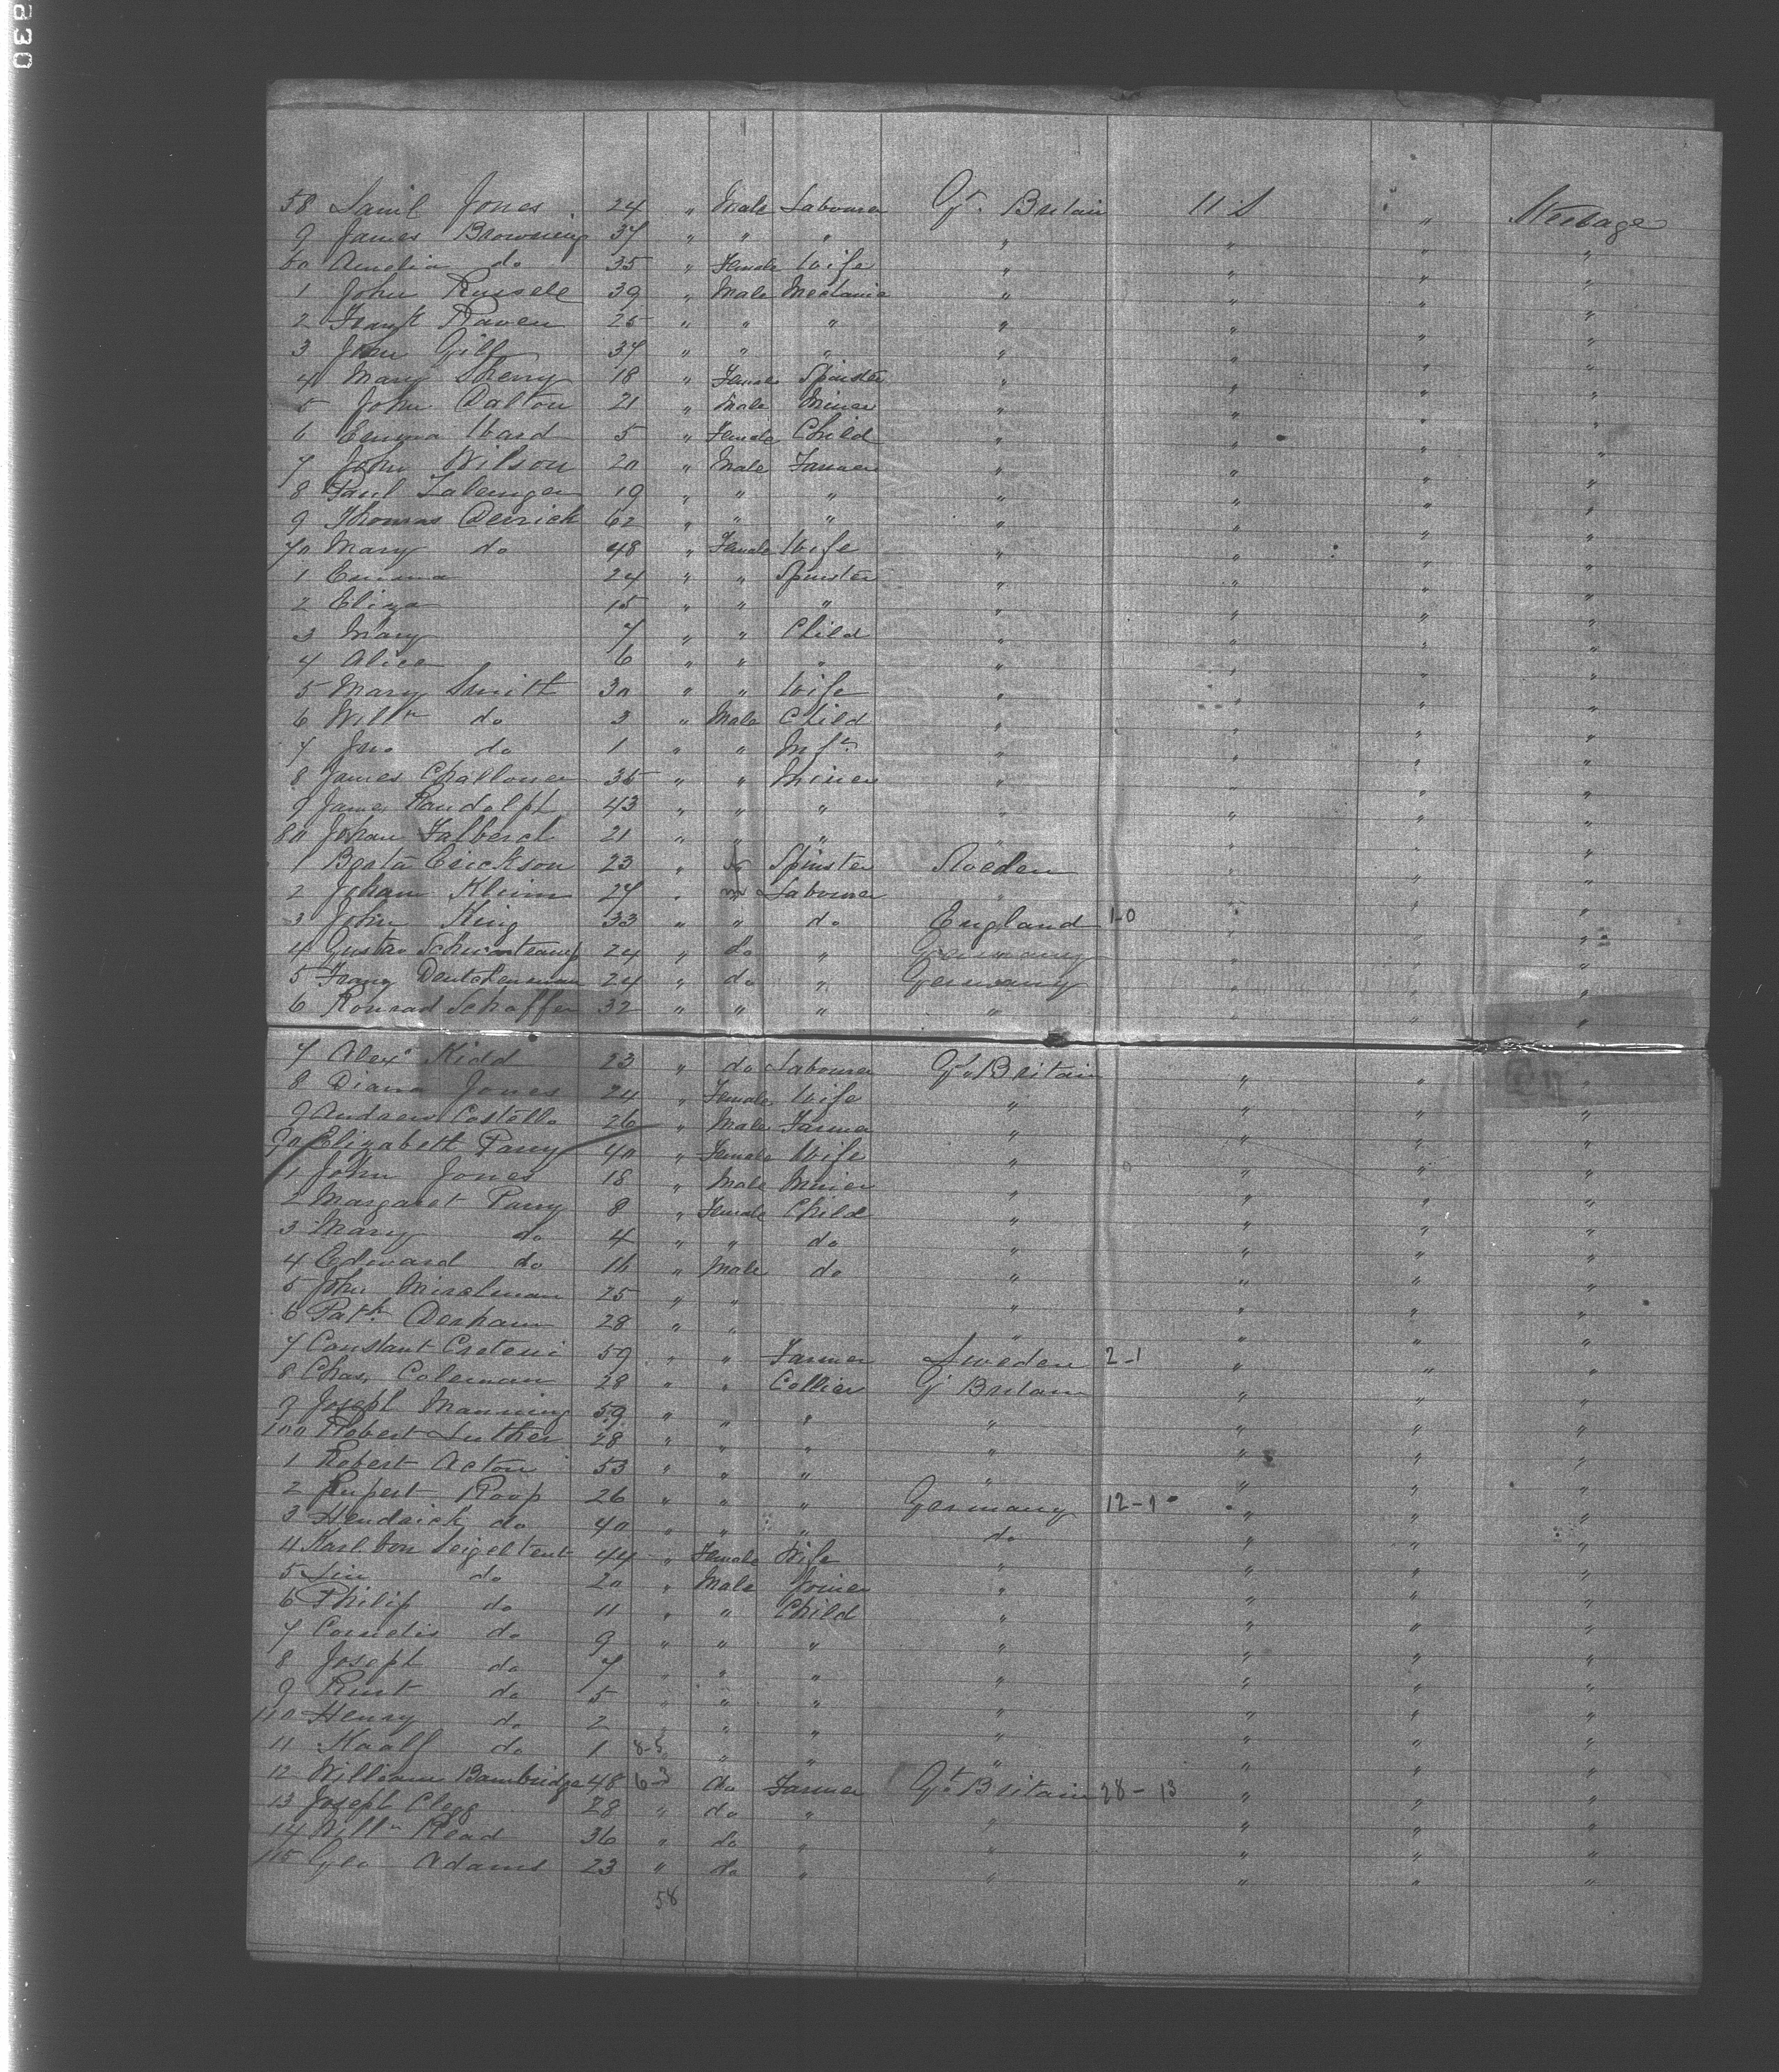 830
58 Saml Jones 24 " Male Labourer Gt. Britain U S " Steerage
9 James Browning 37 " " " " " " "
60 Amelia do 35 " Female Wife " " " "
1 John Russell 39 " Male Mechanic " " " "
2 Frank Raven 25 " " " " " " "
3 John Gill 37 " " " " " " "
4 Mary Sherry 18 " Female Spinster " " " "
5 John Dalton 21 " Male Miner " " " "
6 Emma Ward 5 " Female Child " " " "
7 John Wilson 20 " Male Farmer " " " "
8 Paul 19 " " " " " " "
9 Thomas Derrick 62 " " " " " " "
70 Mary do 48 " Female Wife " " " "
1 Emma 24 " " Spinster " " " "
2 Eliza 15 " " " " " " "
3 Mary 7 " " Child " " " "
4 Alice 6 " " " " " " "
5 Mary Smith 30 " " Wife " " " "
6 Willm do 3 " Male Child " " " "
7 Jno do 1 " " Inft " " " "
8 James Challoner 35 " " Miner " " " "
9 James Randolph 43 " " " " " " "
80 Johan Falberch 21 " " " " " " "
1 Beata Erickson 23 " F Spinster Sweden " " "
2 Johann Kleim 27 " m Labourer " " " "
3 John King 33 " " do England 1-0 " " "
4 Gustav 24 " do " Germany " " "
5 Franz 24 " do " Germany " " "
6 Konrad Schaffer 32 " " " " " " "
7 Alexr Kidd 23 " do Labourer Gt. Britain " " "
8 Diana Jones 24 " Female Wife " " " "
9 Andrew Costello 26 " Male Farmer " " " "
90 Elizabeth Parry 40 " Female Wife " " " "
1 John Jones 18 " Male Miner " " " "
2 Margaret Parry 8 " Female Child " " " "
3 Mary do 4 " " do " " " "
4 Edward do 11 " Male do " " " "
5 John 25 " " " " " "
6 Patk Derham 28 " " " " " "
7 Constant 59 " " Farmer Sweden 2-1 " " "
8 Chas. Coleman 28 " " Collier Gt Britain " " "
9 Joseph Manning 59 " " " " " " "
100 Robert Luther 28 " " " " " " "
1 Robert Acton 53 " " " " " " "
2 Rupert Roop 26 " " " Germany 12-1 " " "
3 Hendrick do 40 " " " do " " "
4 Karl von Seigeltent 44 " Female Wife " " " "
5 do 20 " Male Joiner " " " "
6 Philip do 11 " " Child " " " "
7 Cornelis do 9 " " " " " " "
8 Joseph do 7 " " " " " " "
9 do 5 " " " " " " "
110 Henry do 2 " " " " " " "
11 Kaalf do 1 8-5 " " " " " "
12 William Bambridge 48 6-3 do Farmer Gt Britain 28-13 " " "
13 Joseph Clegg 28 " do " " " " "
14 Willm Read 36 " do " " " " "
115 Geo Adams 23 " do " " " " "
58